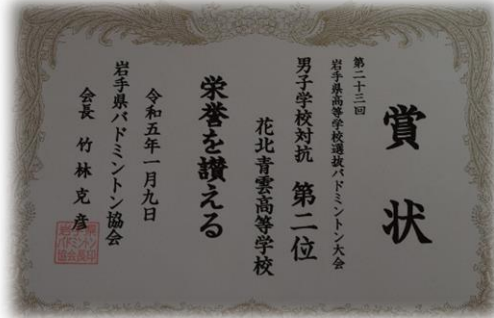 賞状
第二十三回
岩手県高等学校選抜バドミントン大会
男子学校対抗 第二位
花北青雲高等学校
栄誉を讃える
令和五年一月九日
岩手県バドミントン協会
会長 竹林克彦
岩手県
バドミントン
協会長印